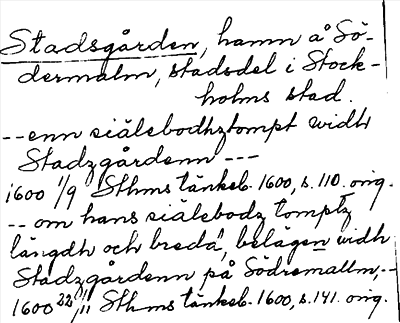 Stadsgården, hamn å Sö-
dermalm, stadsdel i Stock-
holms stad.
--enn siälebodhztompt widh
Stadzgårdenn ---
1600 1/9 Sthms tänkeb. 1600, s. 110. orig.
-- om hans siälebodz tomptz
längdh och breda, belägen widh
Stadzgårdenn på Södremallm, --
1600 22/11 Sthms tänkeb. 1600, s. 141. orig.